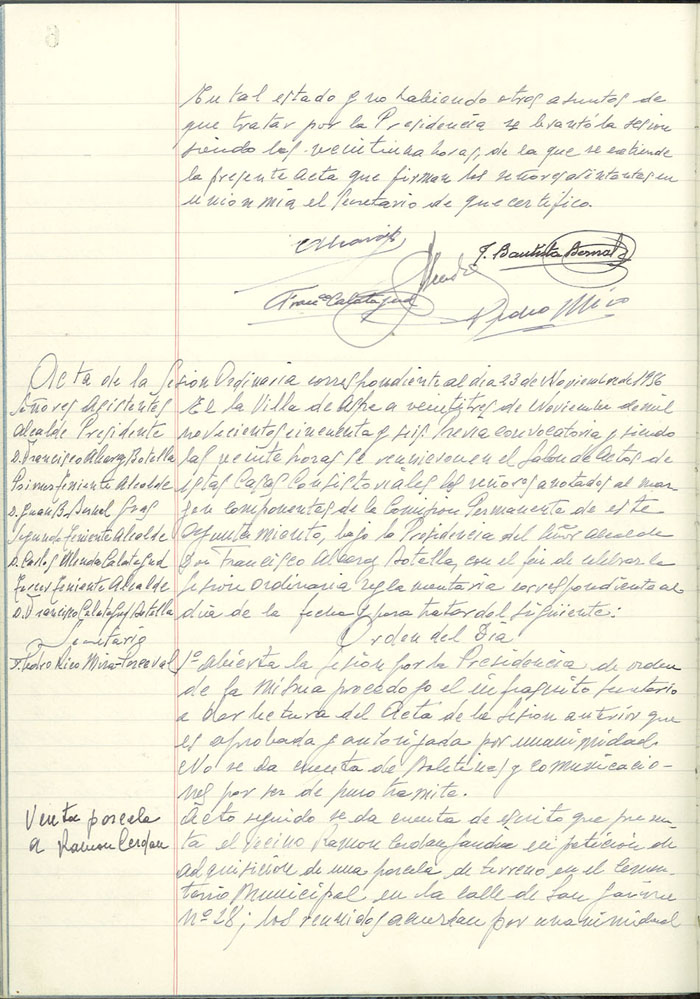 En tal estado y no habiendo otros asuntos de
que tratar por la Presidencia se levantó la sesion
siendo las veintiuna horas, de la que se extiende
la presente Acta que firman los señores asistentes en
union mia el Secretario de que certifico.
J. Bautista Bernal
Franco Calatayud
Pedro Mira
Acta de la Sesion Ordinaria correspondiente al dia 23 de Noviembre de 1956
Señores Asistentes
Alcalde Presidente
D. Francisco Alcaraz Botella
Primer Teniente Alcalde
D. Juan B. Bernal Gras
Segundo Teniente Alcalde
D. Carlos Almodo Calatayud
Tercer Teniente Alcalde
D. Francisco Calatayud Botella
Secretario
D. Pedro Rico Mira-Perceval
En la Villa de Aspe a veintitres de Noviembre de mil
novecientos cincuenta y seis. Previa convocatoria y siendo
las veinte horas se reunieron en el Salon de Actos de
estas Casas Consistoriales los señores anotados al mar-
gen componentes de la Comision Permanente de este
Ayuntamiento, bajo la Presidencia del Señor Alcalde
Don Francisco Alcaraz Botella, con el fin de celebrar la
sesion Ordinaria reglamentaria correspondiente al
dia de la fecha y para tratar del siguiente:
Orden del Dia
1º Abierta la sesion por la Presidencia de orden
de la misma procedo yo el infrascrito Secretario
a dar lectura del Acta de la sesion anterior que
es aprobada y autorizada por unanimidad.
No se da cuenta de Boletines y comunicacio-
nes por ser de puro tramite.
Venta parcela
a Ramon Cerdan
Acto seguido se da cuenta de escrito que presen-
ta el vecino Ramon Cerdan en peticion de
adquisicion de una parcela de terreno en el Cemen-
terio Municipal en la calle de San
Nº 28; los reunidos acuerdan por unanimidad